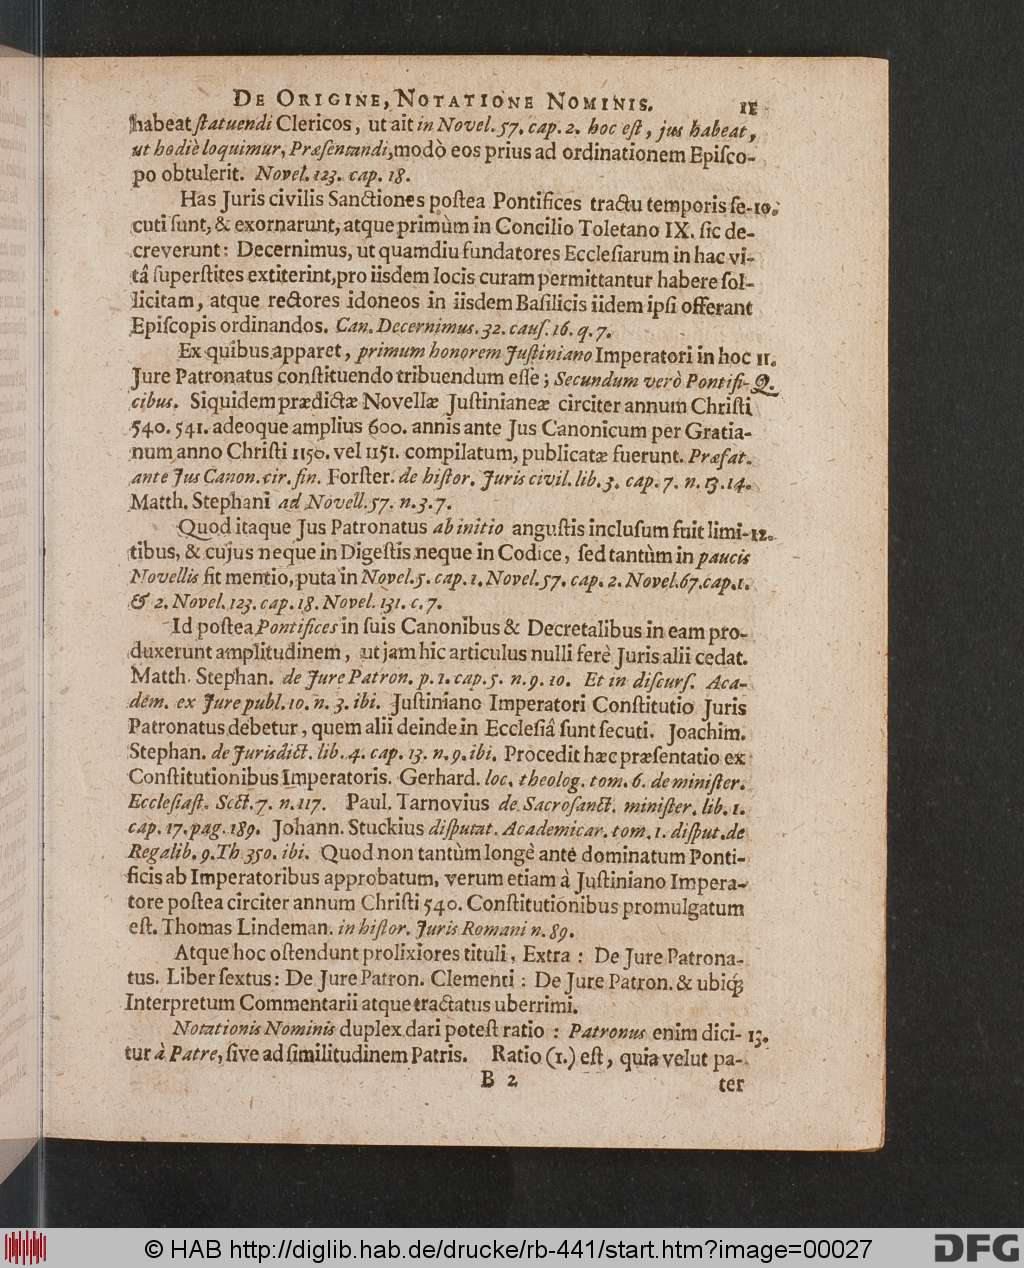 De Origine, Notatione Nominis. 11
habeat ſtatuendi Clericos, ut ait in Novel. 57. cap. 2. hoc eſt, jus habeat,
ut hodiè loquimur, Præſentandi, modò eos prius ad ordinationem Epiſco-
po obtulerit. Novel. 123. cap. 18.
Has Juris civilis Sanctiones poſtea Pontifices tractu temporis ſe- 10.
cuti ſunt, & exornarunt, atque primùm in Concilio Toletano IX. ſic de-
creverunt: Decernimus, ut quamdiu fundatores Eccleſiarum in hac vi-
tâ ſuperſtites extiterint, pro iisdem locis curam permittantur habere ſol-
licitam, atque rectores idoneos in iisdem Baſilicis iidem ipſi offerant
Epiſcopis ordinandos. Can. Decernimus. 32. cauſ. 16. q. 7.
Ex quibus apparet, primum honorem Juſtiniano Imperatori in hoc 11.
Jure Patronatus conſtituendo tribuendum eſſe; Secundum verò Pontifi- Q.
cibus. Siquidem prædictæ Novellæ Juſtinianeæ circiter annum Chriſti
540. 541. adeoque amplius 600. annis ante Jus Canonicum per Gratia-
num anno Chriſti 1150. vel 1151. compilatum, publicatæ fuerunt. Præfat.
ante Jus Canon. cir. fin. Forſter. de hiſtor. Juris civil. lib. 3. cap. 7. n. 13. 14.
Matth. Stephani ad Novell. 57. n. 3. 7.
Quod itaque Jus Patronatus ab initio anguſtis incluſum fuit limi- 12.
tibus, & cujus neque in Digeſtis neque in Codice, ſed tantùm in paucis
Novellis fit mentio, puta in Novel. 5. cap. 1. Novel. 57. cap. 2. Novel. 67. cap. 1.
& 2. Novel. 123. cap. 18. Novel. 131. c. 7.
Id poſtea Pontifices in ſuis Canonibus & Decretalibus in eam pro-
duxerunt amplitudinem, ut jam hic articulus nulli ferè Juris alii cedat.
Matth. Stephan. de Jure Patron. p. 1. cap. 5. n. 9. 10. Et in diſcurſ. Aca-
dem. ex Jure publ. 10. n. 3. ibi. Juſtiniano Imperatori Conſtitutio Juris
Patronatus debetur, quem alii deinde in Eccleſiâ ſunt ſecuti. Joachim.
Stephan. de Jurisdict. lib. 4. cap. 13. n. 9. ibi. Procedit hæc præſentatio ex
Conſtitutionibus Imperatoris. Gerhard. loc. theolog. tom. 6. de miniſter.
Eccleſiaſt. Sect. 7. n. 117. Paul. Tarnovius de Sacroſanct. miniſter. lib. 1.
cap. 17. pag. 189. Johann. Stuckius diſputat. Academicar. tom. 1. diſput. de
Regalib. 9. Th 350. ibi. Quod non tantùm longè ante dominatum Ponti-
ficis ab Imperatoribus approbatum, verum etiam à Juſtiniano Impera-
tore poſtea circiter annum Chriſti 540. Conſtitutionibus promulgatum
eſt. Thomas Lindeman. in hiſtor. Juris Romani n. 89.
Atque hoc oſtendunt prolixiores tituli, Extra: De Jure Patrona-
tus. Liber ſextus: De Jure Patron. Clementi: De Jure Patron. & ubiq;
Interpretum Commentarii atque tractatus uberrimi.
Notationis Nominis duplex dari poteſt ratio: Patronus enim dici- 13.
tur à Patre, ſive ad ſimilitudinem Patris. Ratio (1.) eſt, quia velut pa-
B 2 ter
© HAB http://diglib.hab.de/drucke/rb-441/start.htm?image=00027
DFG